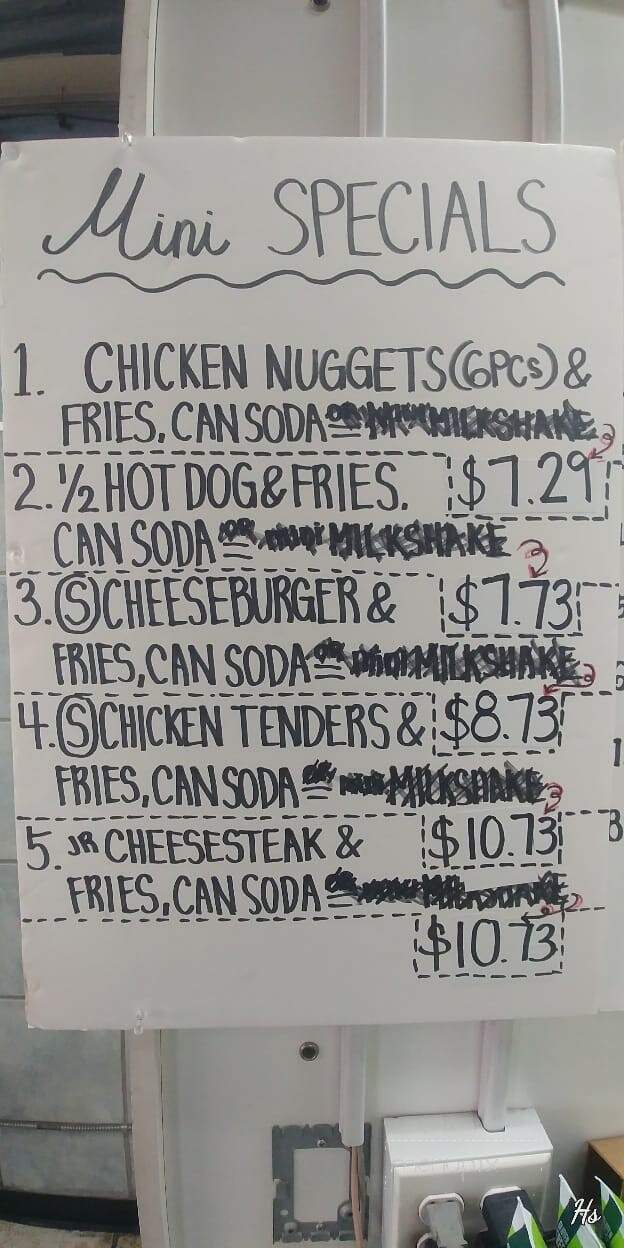 Mini SPECIALS
1. CHICKEN NUGGETS (6PCS) &
FRIES, CAN SODA OR MINI MILKSHAKE
$7.29
2. ½ HOT DOG & FRIES.
CAN SODA OR mini MILKSHAKE
$7.73
3. Ⓢ CHEESEBURGER &
FRIES, CAN SODA OR mini MILKSHAKE
$8.73
4. Ⓢ CHICKEN TENDERS &
FRIES, CAN SODA OR mini MILKSHAKE
$10.73
5. JR CHEESESTEAK &
FRIES, CAN SODA OR MILKSHAKE
$10.73
Hs